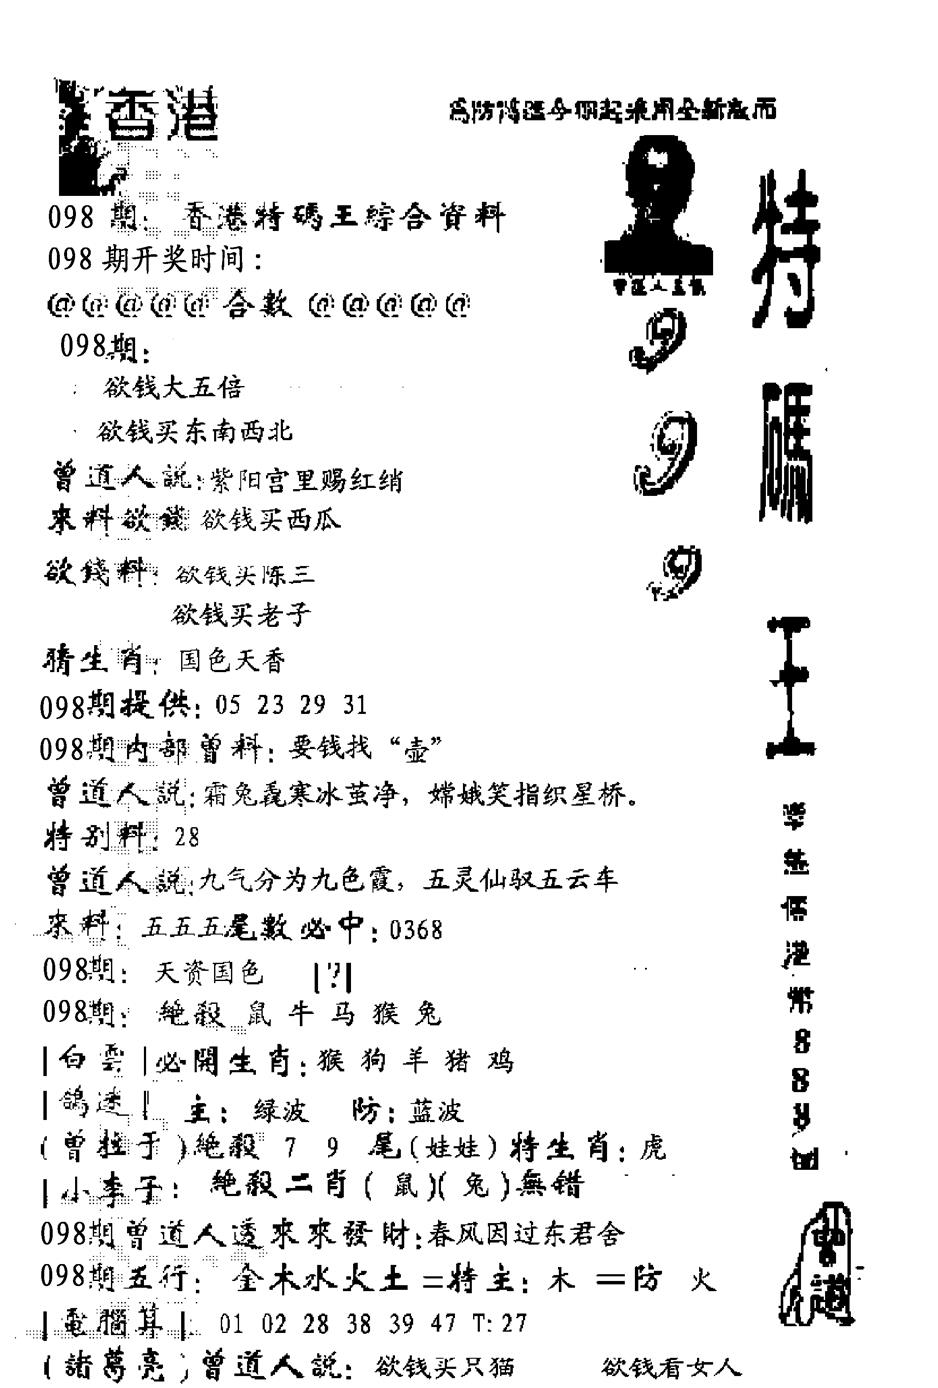 香港
098 期: 香港特碼王綜合資料
098 期开奖时间:
@@@@@ 合數 @@@@@
098期:
欲钱大五倍
欲钱买东南西北
曾道人説:紫阳宫里赐红绡
來料欲錢 欲钱买西瓜
欲錢料: 欲钱买陈三
欲钱买老子
猜生肖: 国色天香
098期提供: 05 23 29 31
098期内部曾料: 要钱找“壶”
曾道人説:霜兔毳寒冰茧净，嫦娥笑指织星桥。
特别料: 28
曾道人説:九气分为九色霞，五灵仙驭五云车
來料: 五五五尾數必中: 0368
098期: 天资国色 |?|
098期: 絶殺 鼠 牛 马 猴 兔
|白雲|必開生肖:猴 狗 羊 猪 鸡
|鴿透| 主: 绿波 防: 蓝波
(曾拄于)絶殺 7 9 尾(娃娃)特生肖: 虎
|小李子: 絶殺二肖(鼠)(兔)無错
098期曾道人透來來發財:春风因过东君舍
098期五行: 金木水火土=特主: 木 =防 火
|電腦算| 01 02 28 38 39 47 T:27
(諸葛亮)曾道人説: 欲钱买只猫 欲钱看女人
9
9
9
特
碼
王
港
8
8